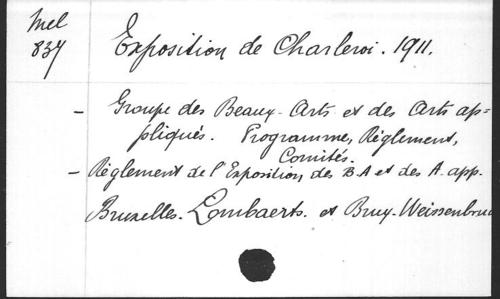 Mel
837
Exposition de Charleroi. 1911.
- Groupe des Beaux-Arts et des Arts ap-
pliqués. Programme, Règlement,
Comités.
- Règlement de l'Exposition des B.A et des A. app.
Bruxelles. Lombaerts. et Bruy-Weissenbruch